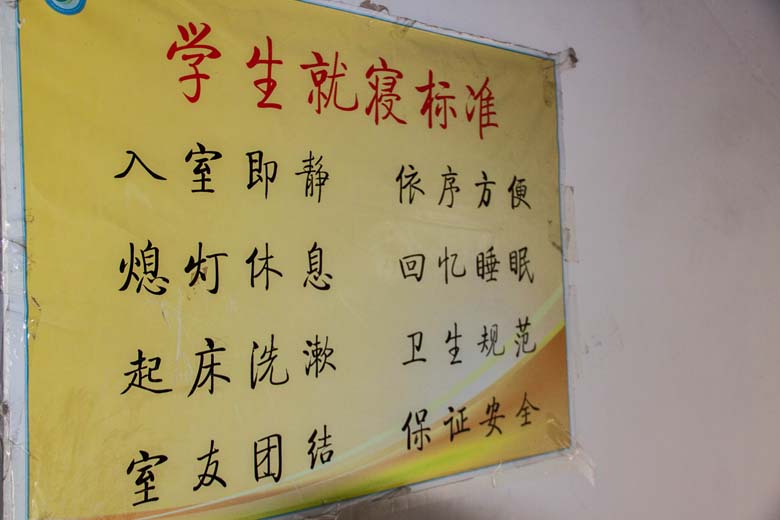 学生就寝标准
入室即静 依序方便
熄灯休息 回忆睡眠
起床洗漱 卫生规范
室友团结 保证安全